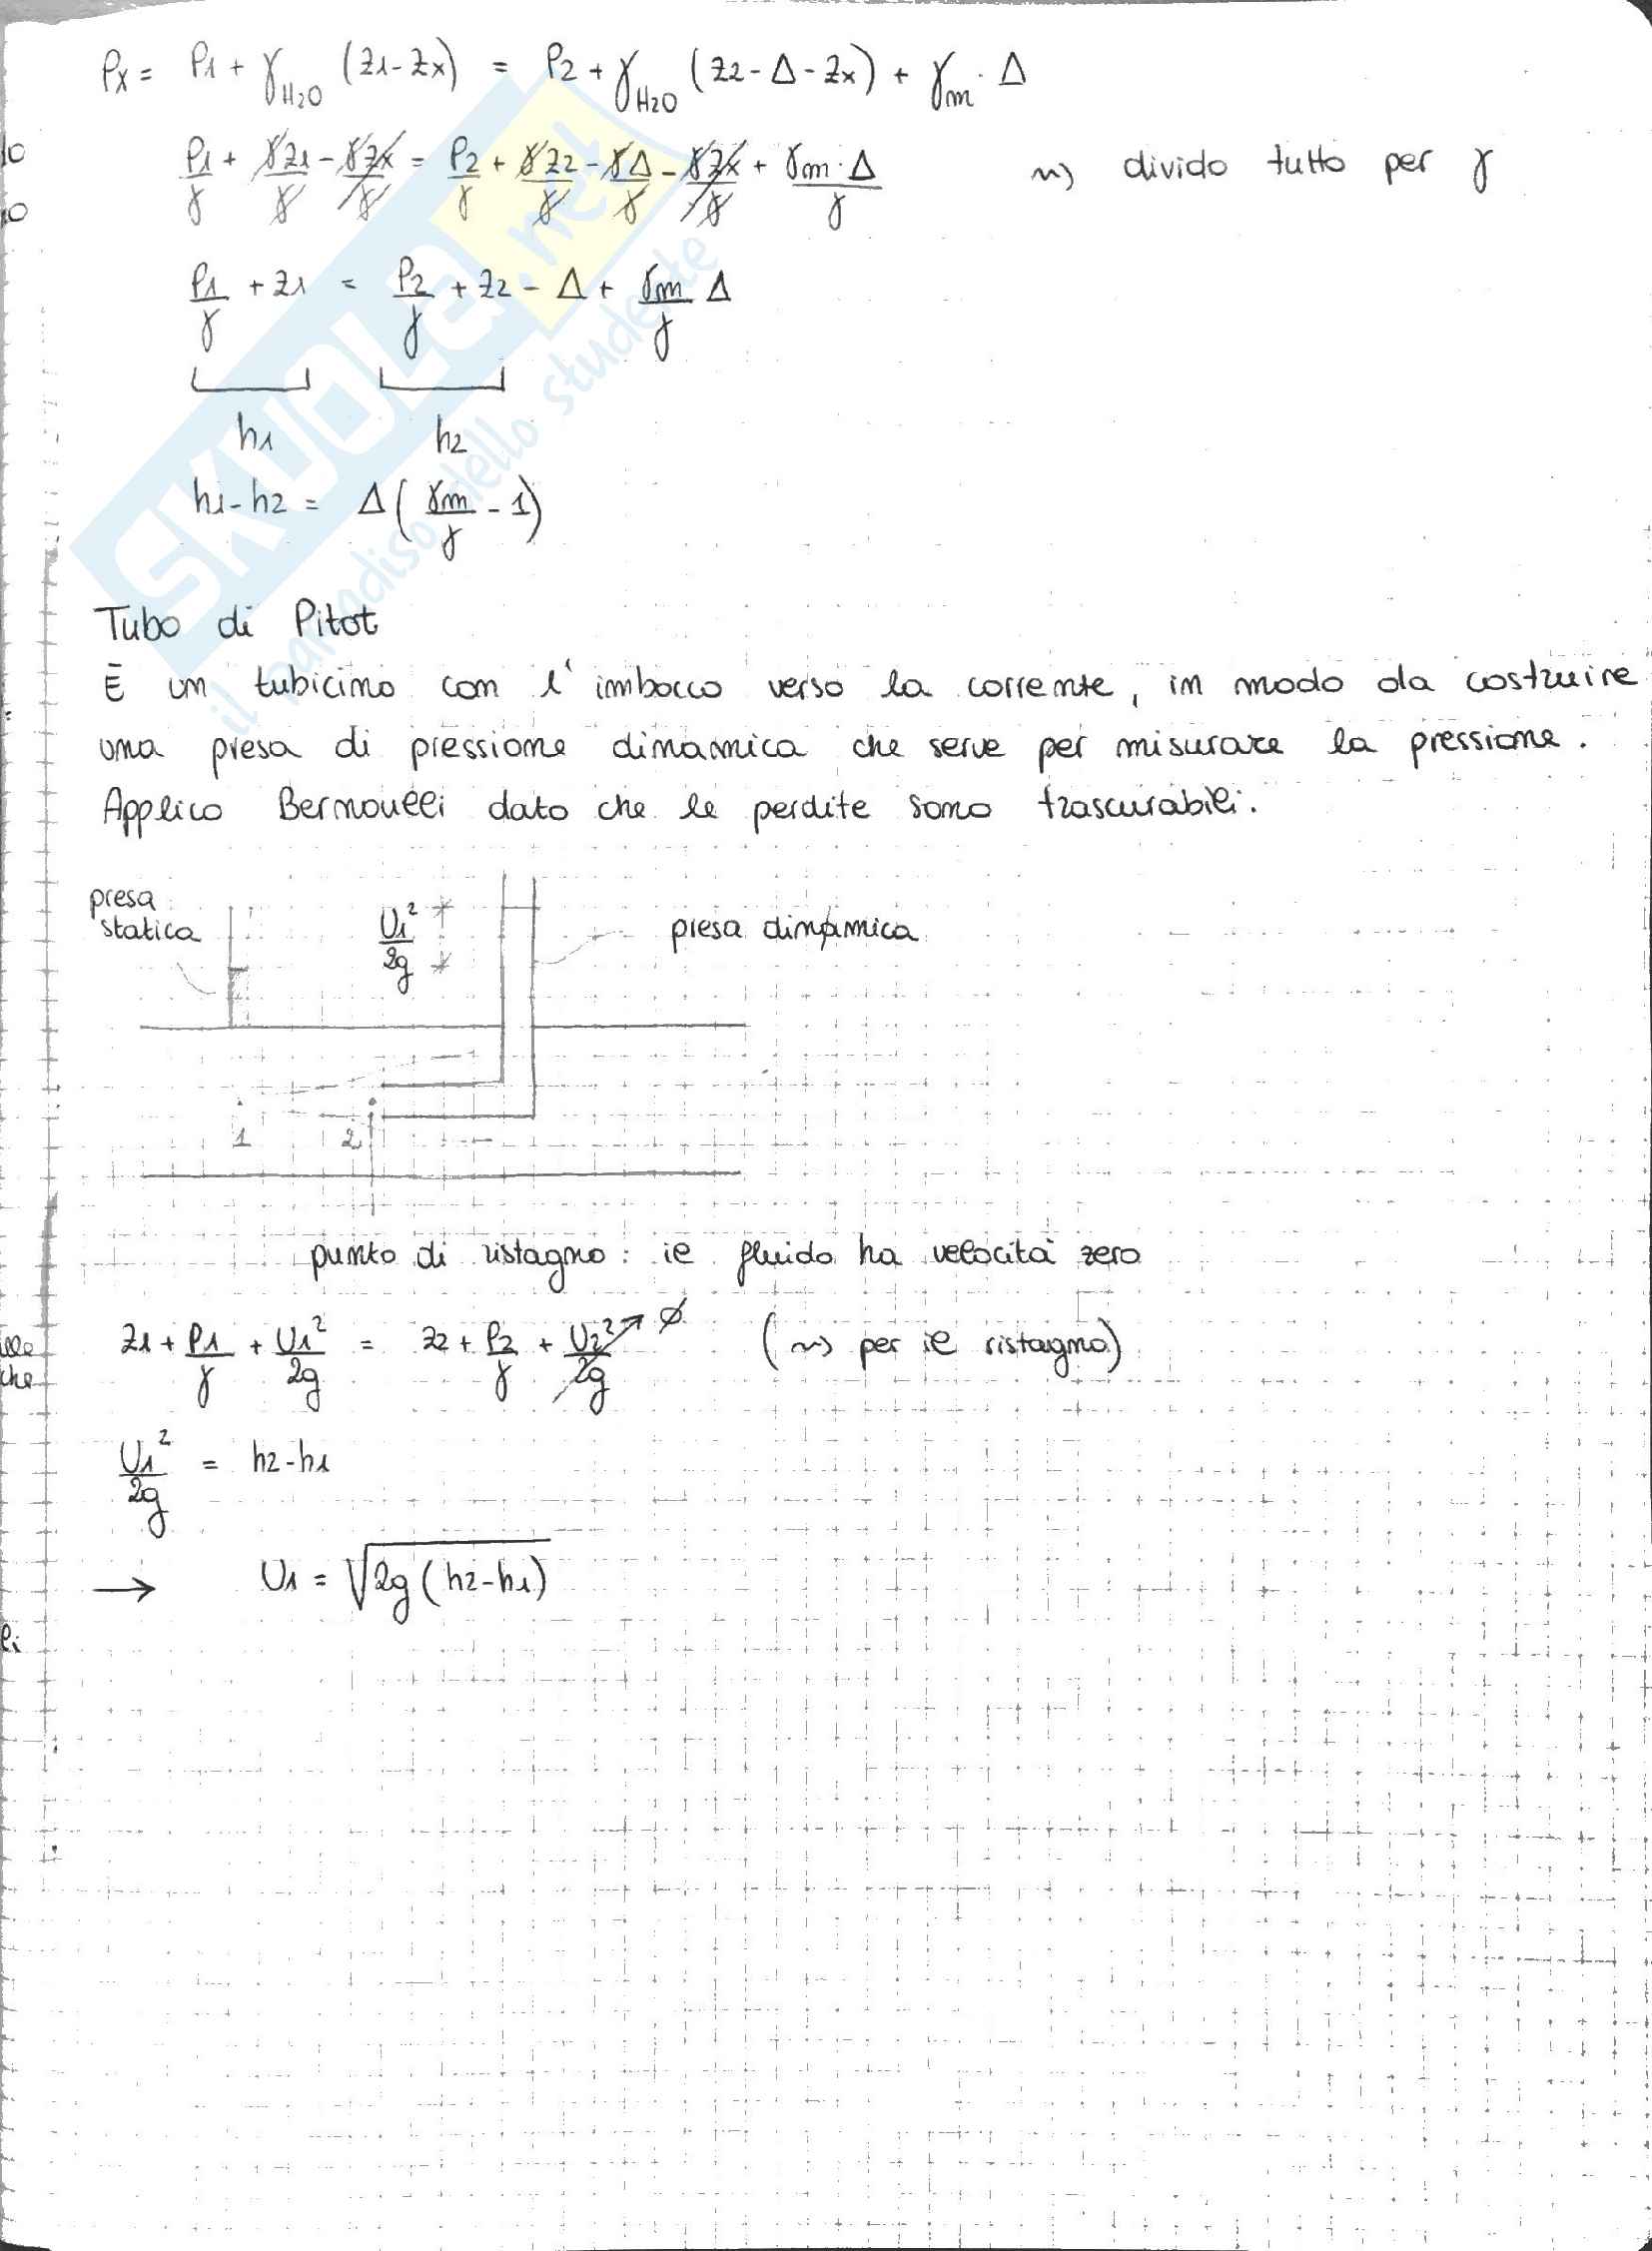 Px = P1 + γH2O (z1-zx) = P2 + γH2O (z2 - Δ - zx) + γm · Δ
P1/γ + γz1/γ - γzx/γ = P2/γ + γz2/γ - γΔ/γ - γzx/γ + γm·Δ/γ ~> divido tutto per γ
P1/γ + z1 = P2/γ + z2 - Δ + γm/γ Δ
h1 h2
h1-h2 = Δ(γm/γ - 1)
SKUOLA.net
il paradiso dello studente
Tubo di Pitot
È un tubicino con l'imbocco verso la corrente, in modo da costruire
una presa di pressione dinamica che serve per misurare la pressione.
Applico Bernoulli dato che le perdite sono trascurabili.
presa
statica
U1²/2g
presa dinamica
1 2
punto di ristagno: il fluido ha velocità zero
z1 + P1/γ + U1²/2g = z2 + P2/γ + U2²/2g ↗ ∅ (~> per il ristagno)
U1²/2g = h2-h1
→ U1 = √2g(h2-h1)